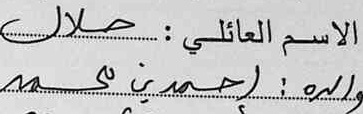 الاسم العائلي : حلال
والده : احمد بن محمد